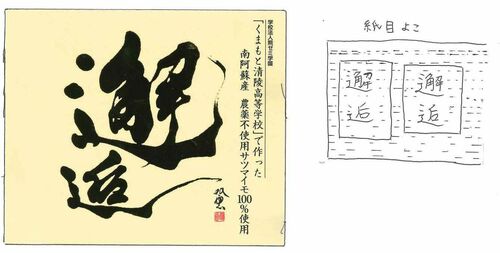 学校法人開ゼミ学園
「くまもと清陵高等学校」で作った
南阿蘇産 農薬不使用サツマイモ100%使用
邂
逅
紙目よこ
邂
逅
邂
逅